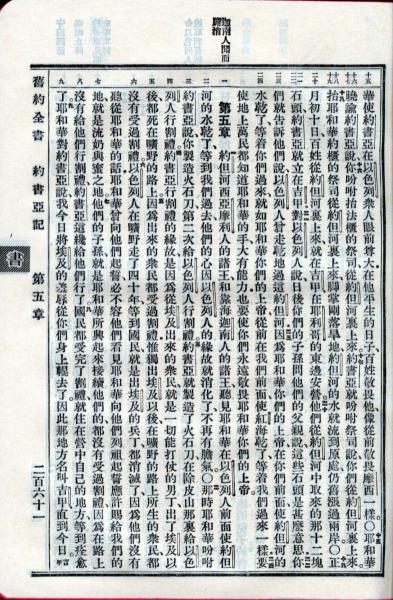 迦南人聞而
膽消
華使約書亞在以色列衆人眼前尊大在他平生的日子百姓敬畏他像從前敬畏摩西一樣○耶和華
曉諭約書亞說你吩咐抬法櫃的祭司從約但河裏上來約書亞就吩咐祭司說你們從約但河裏上來
抬耶和華約櫃的祭司從約但河裏上來脚掌剛落旱地約但河的水就流到原處仍舊漲過兩岸○正
月初十日百姓從約但河裏上來就在吉甲在耶利哥的東邊安營他們從約但河中取來的那十二塊
石頭約書亞就立在吉甲對以色列人說日後你們的子孫問他們的父親說這些石頭是甚麼意思你
們就告訴他們說以色列人曾走乾地過這約但河因爲耶和華你們的上帝在你們前面使約但河的
水乾了等着你們過來就如耶和華你們的上帝從前在我們前面使紅海乾了等着我們過來一樣要
使地上萬民都知道耶和華的手大有能力也要使你們永遠敬畏耶和華你們的上帝
第五章 約但河西亞摩利人的諸王和靠海迦南人的諸王聽見耶和華在以色列人前面使約但
河的水乾了等到我們過去他們的心因以色列人的緣故就消化了不再有膽氣○那時耶和華吩咐
約書亞說你製造火石刀第二次給以色列人行割禮約書亞就製造了火石刀在除皮山那裏給以色
列人行割禮約書亞行割禮的緣故是因爲從埃及出來的衆民就是一切能打仗的男丁出了埃及以
後都死在曠野的路上因爲出來的衆民都受過割禮惟獨出埃及以後在曠野的路上所生的衆民都
沒有受過割禮以色列人在曠野走了四十年等到國民就是出埃及的兵丁都消滅了因爲他們沒有
聽從耶和華的話耶和華曾向他們起誓必不容他們看見耶和華向他們列祖起誓應許賜給我們的
地就是流奶與蜜之地他們的子孫就是耶和華所興起來接續他們的都沒有受過割禮因爲在路上
沒有給他們行割禮約書亞這纔給他們行了國民都受完了割禮就住在營中自己的地方等到痊愈
了耶和華對約書亞說我今日將埃及的羞辱從你們身上輥去了因此那地方名叫吉甲直到今日
舊約全書 約書亞記 第五章 二百六十一
書